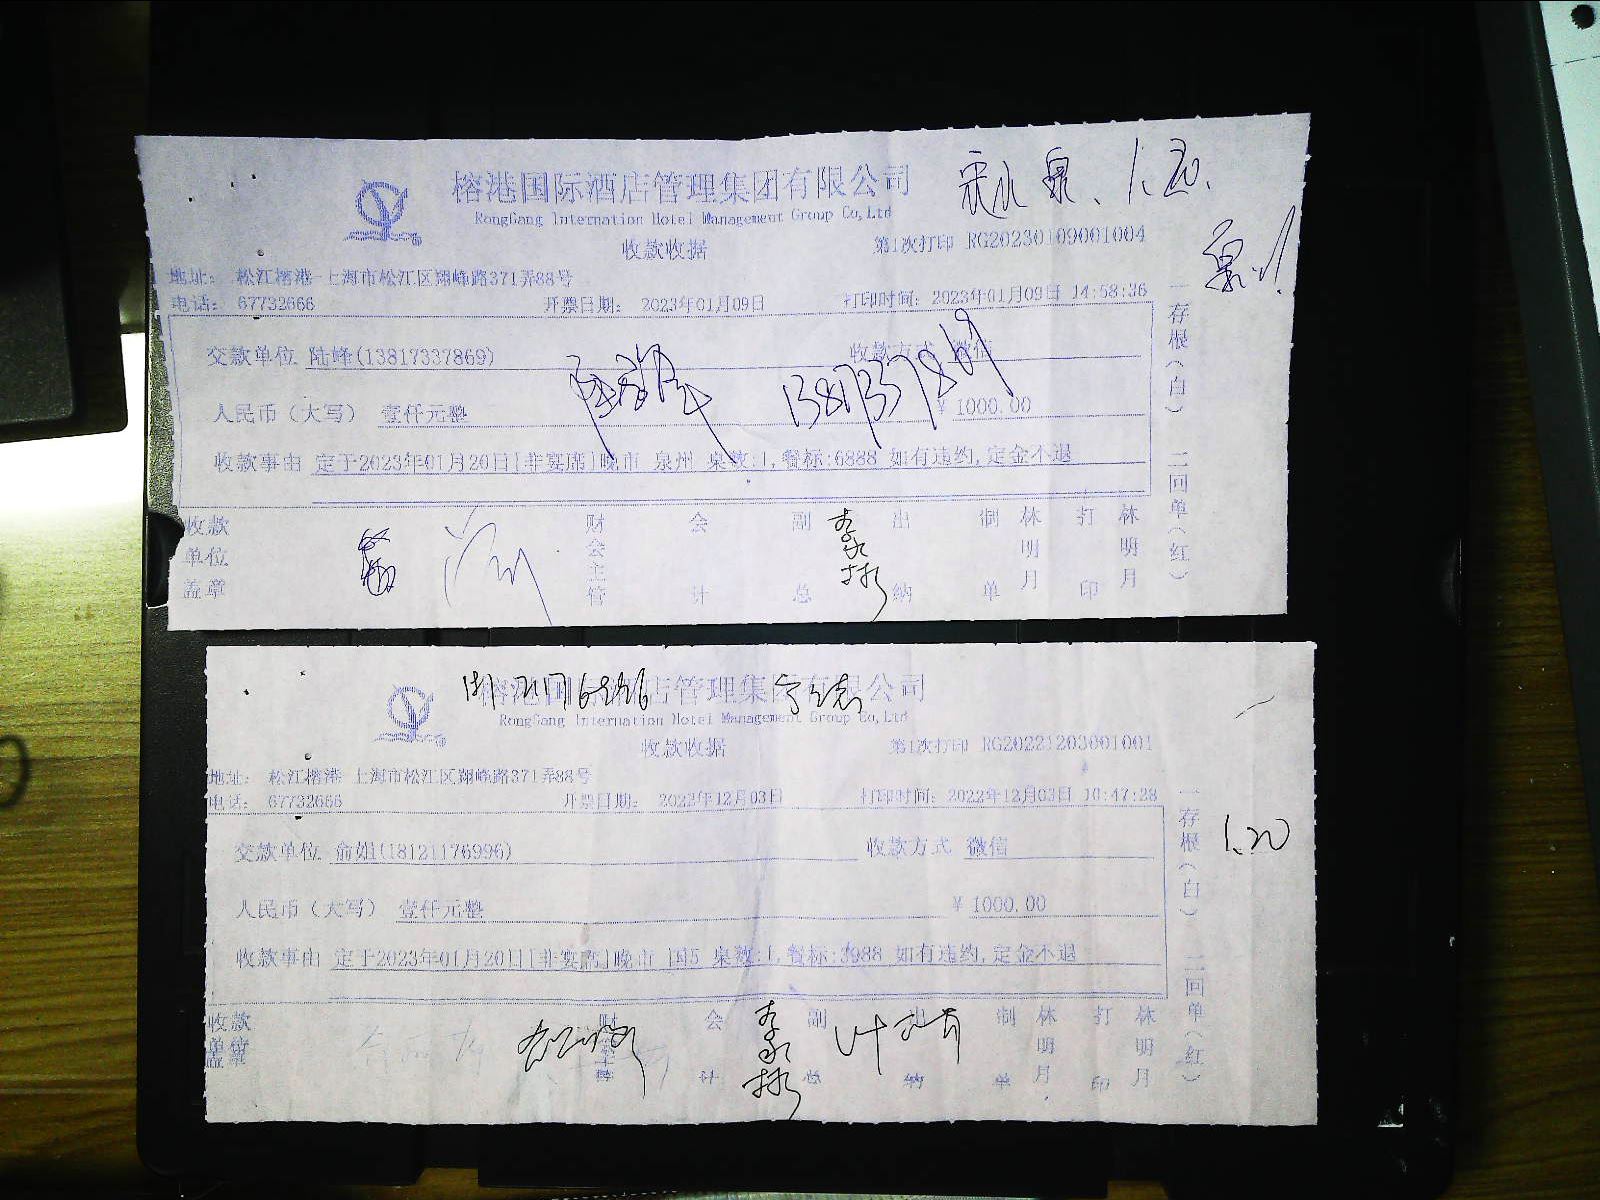 榕港国际酒店管理集团有限公司
RongGang Internation Hotel Management Group Co,Ltd
1.20.
收款收据
第1次打印 RG20230109001004
地址： 松江榕港 上海市松江区翔峰路371弄88号
电话： 67732666 开票日期： 2023年01月09日 打印时间： 2023年01月09日 14:58:36
交款单位 陆峰(13817337869) 收款方式 微信
陆峰 13817337869
人民币（大写） 壹仟元整 ¥ 1000.00
收款事由 定于2023年01月20日[非宴席]晚市 泉州 桌数:1,餐标:6888 如有违约,定金不退
收款单位盖章 财会主管 会计 副总 出纳 制单 林明月 打印 林明月
一存根（白） 二回单（红）
榕港国际酒店管理集团有限公司
宁德
RongGang Internation Hotel Management Group Co,Ltd
收款收据
第1次打印 RG20221203001001
地址： 松江榕港 上海市松江区翔峰路371弄88号
电话： 67732666 开票日期： 2022年12月03日 打印时间： 2022年12月03日 10:47:28
交款单位 俞姐(18121176996) 收款方式 微信
人民币（大写） 壹仟元整 ¥ 1000.00
收款事由 定于2023年01月20日[非宴席]晚市 国5 桌数:1,餐标:3988 如有违约,定金不退
收款单位盖章 财会主管 会计 副总 出纳 制单 林明月 打印 林明月
一存根（白） 二回单（红）
1.20